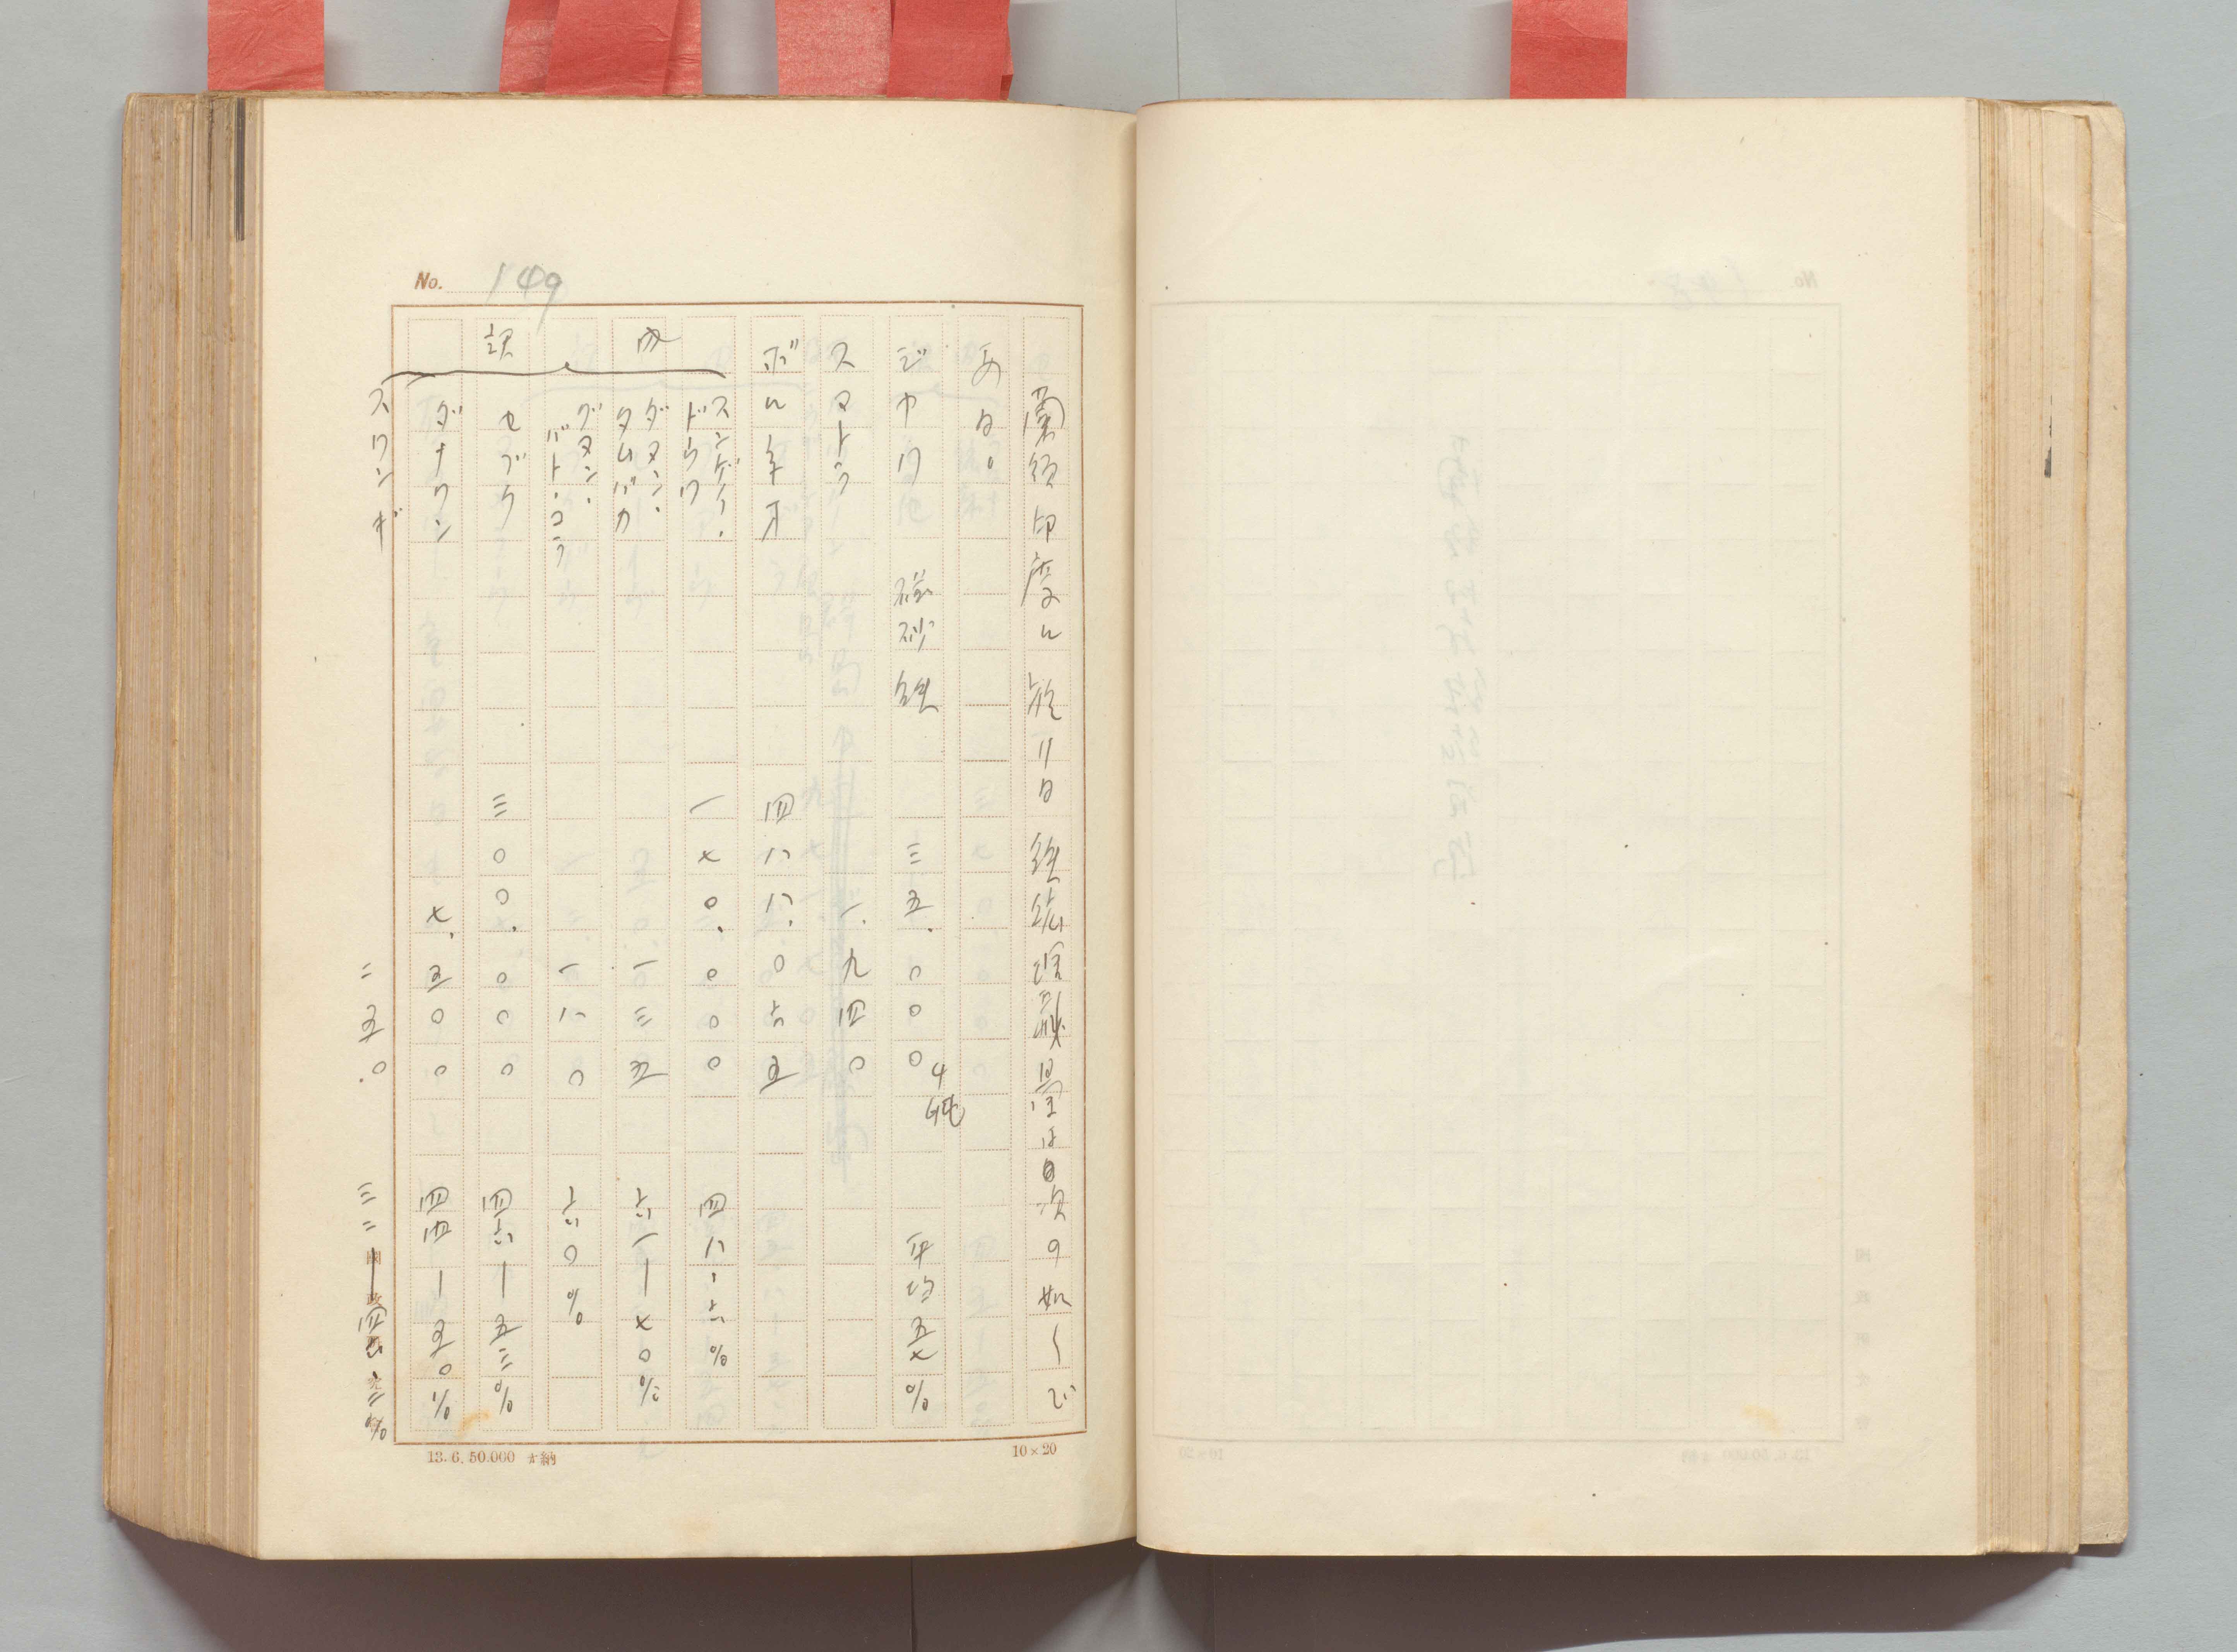 No. 149
蘭領印度に於ける鉄鉱埋蔵量は次の如くで
ある。
ジヤワ 磁砂鉄 三五.〇〇〇千瓲 平均五七%
スマトラ 一.九四〇
ボルネオ 四八八.〇六五
内訳
スンゲイ・ドウワ 一七〇.〇〇〇 四八.六%
グヌン・タムバガ 一三五 六一—七〇%
グヌン・バト・コラ 一八〇 六〇%
セブク 三〇〇.〇〇〇 四六—五三%
ダナワン 七.五〇〇 四四—五〇%
スワンギ 二五〇 三二—%
13.6.50.000 納
10×20